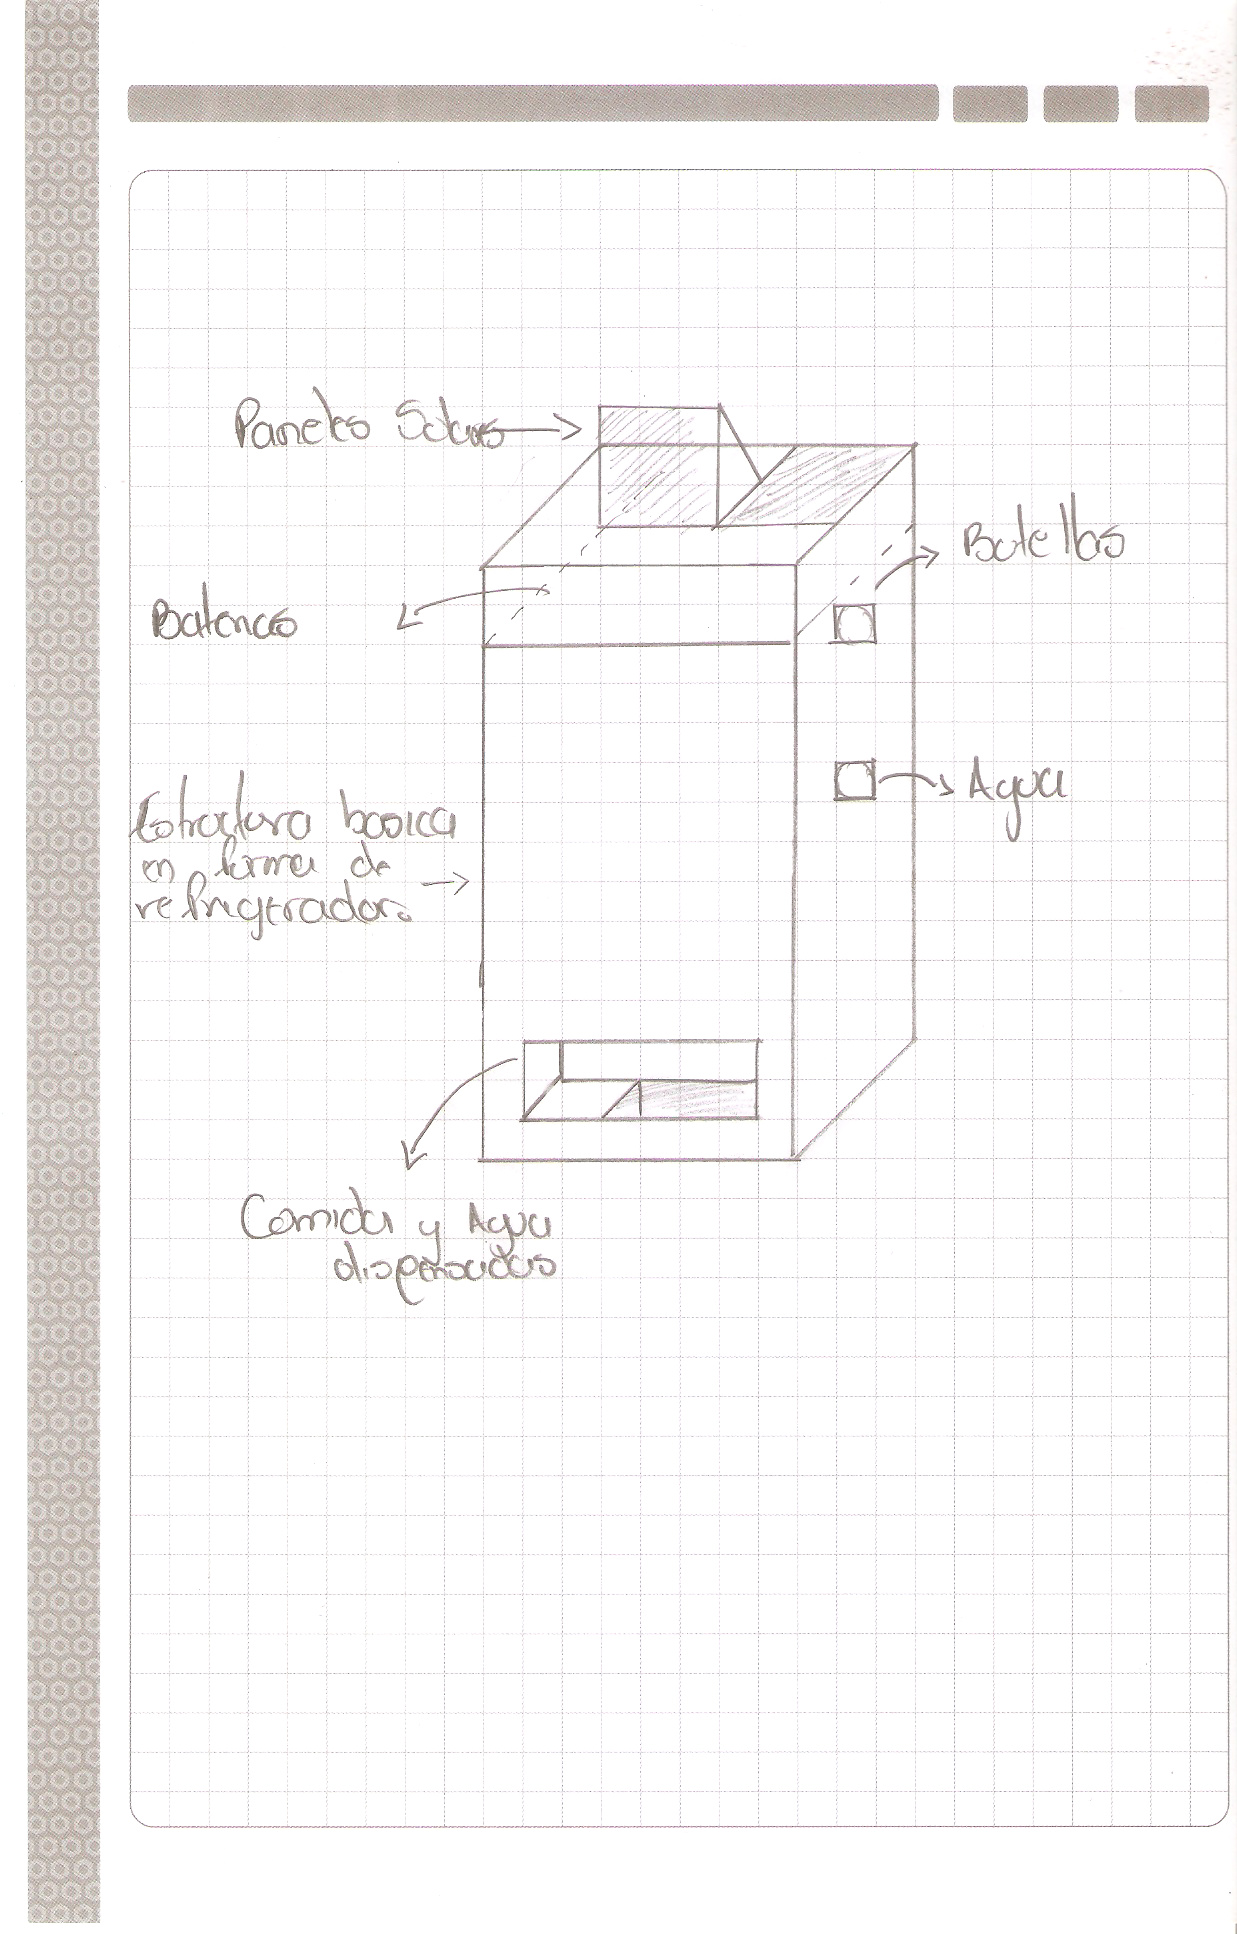 Paneles Solares
Botellas
Baterias
Agua
Estructura basica
en forma de
refrigerador.
Comida y Agua
dispensadas